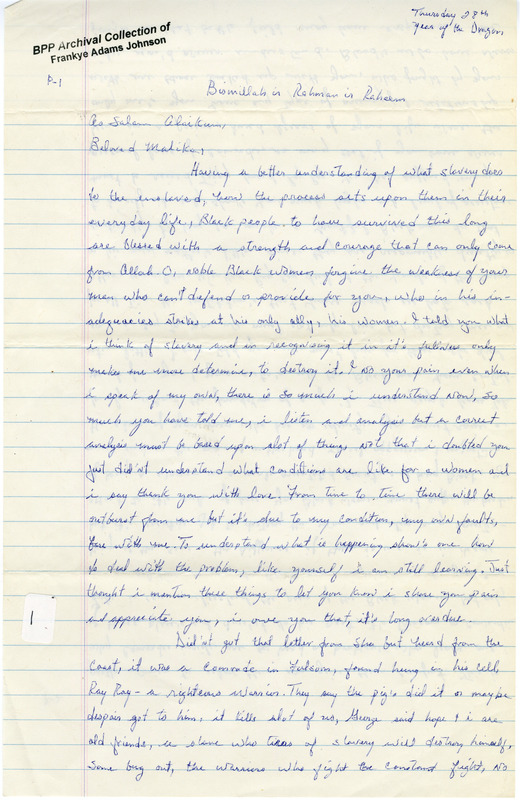 Thursday 28th
Year of the Dragon
BPP Archival Collection of
Frankye Adams Johnson
P-1
Bismillah ir Rahman ir Raheem
As Salam Alaikum,
Beloved Malika,
Having a better understanding of what slavery does
to the enslaved, how the process acts upon them in their
everyday life, Black people to have survived this long
are blessed with a strength and courage that can only come
from Allah. O, noble Black women forgive the weakness of your
men who can't defend or provide for you, who in his in-
adequacies strikes at his only ally, his women. I told you what
i think of slavery and in recognising it in it's fullness only
makes me more determine, to destroy it. I no your pain even when
i speak of my own, there is so much i understand now, so
much you have told me, i listen and analysis but a correct
analysis must be based upon alot of things not that i doubted you
just did'nt understand what conditions are like for a women and
i say thank you with love. From time to time there will be
outburst from me but it's due to my condition, my own faults,
bare with me. To understand what is happening show's one how
to deal with the problem, like yourself i am still learning. Just
thought i mention these things to let you know i share your pain
and appreciate you, i owe you that, it's long overdue.
Did'nt get that letter from Sha but heard from the
Coast, it was a Comrade in Folsom, found hung in his cell,
Ray Ray - a righteous warrior. They say the pig's did it or maybe
despair got to him, it kills alot of us, George said hope & i are
old friends, a slave who tires of slavery will destroy himself,
some bug out, the warriors who fight the constant fight, no
1